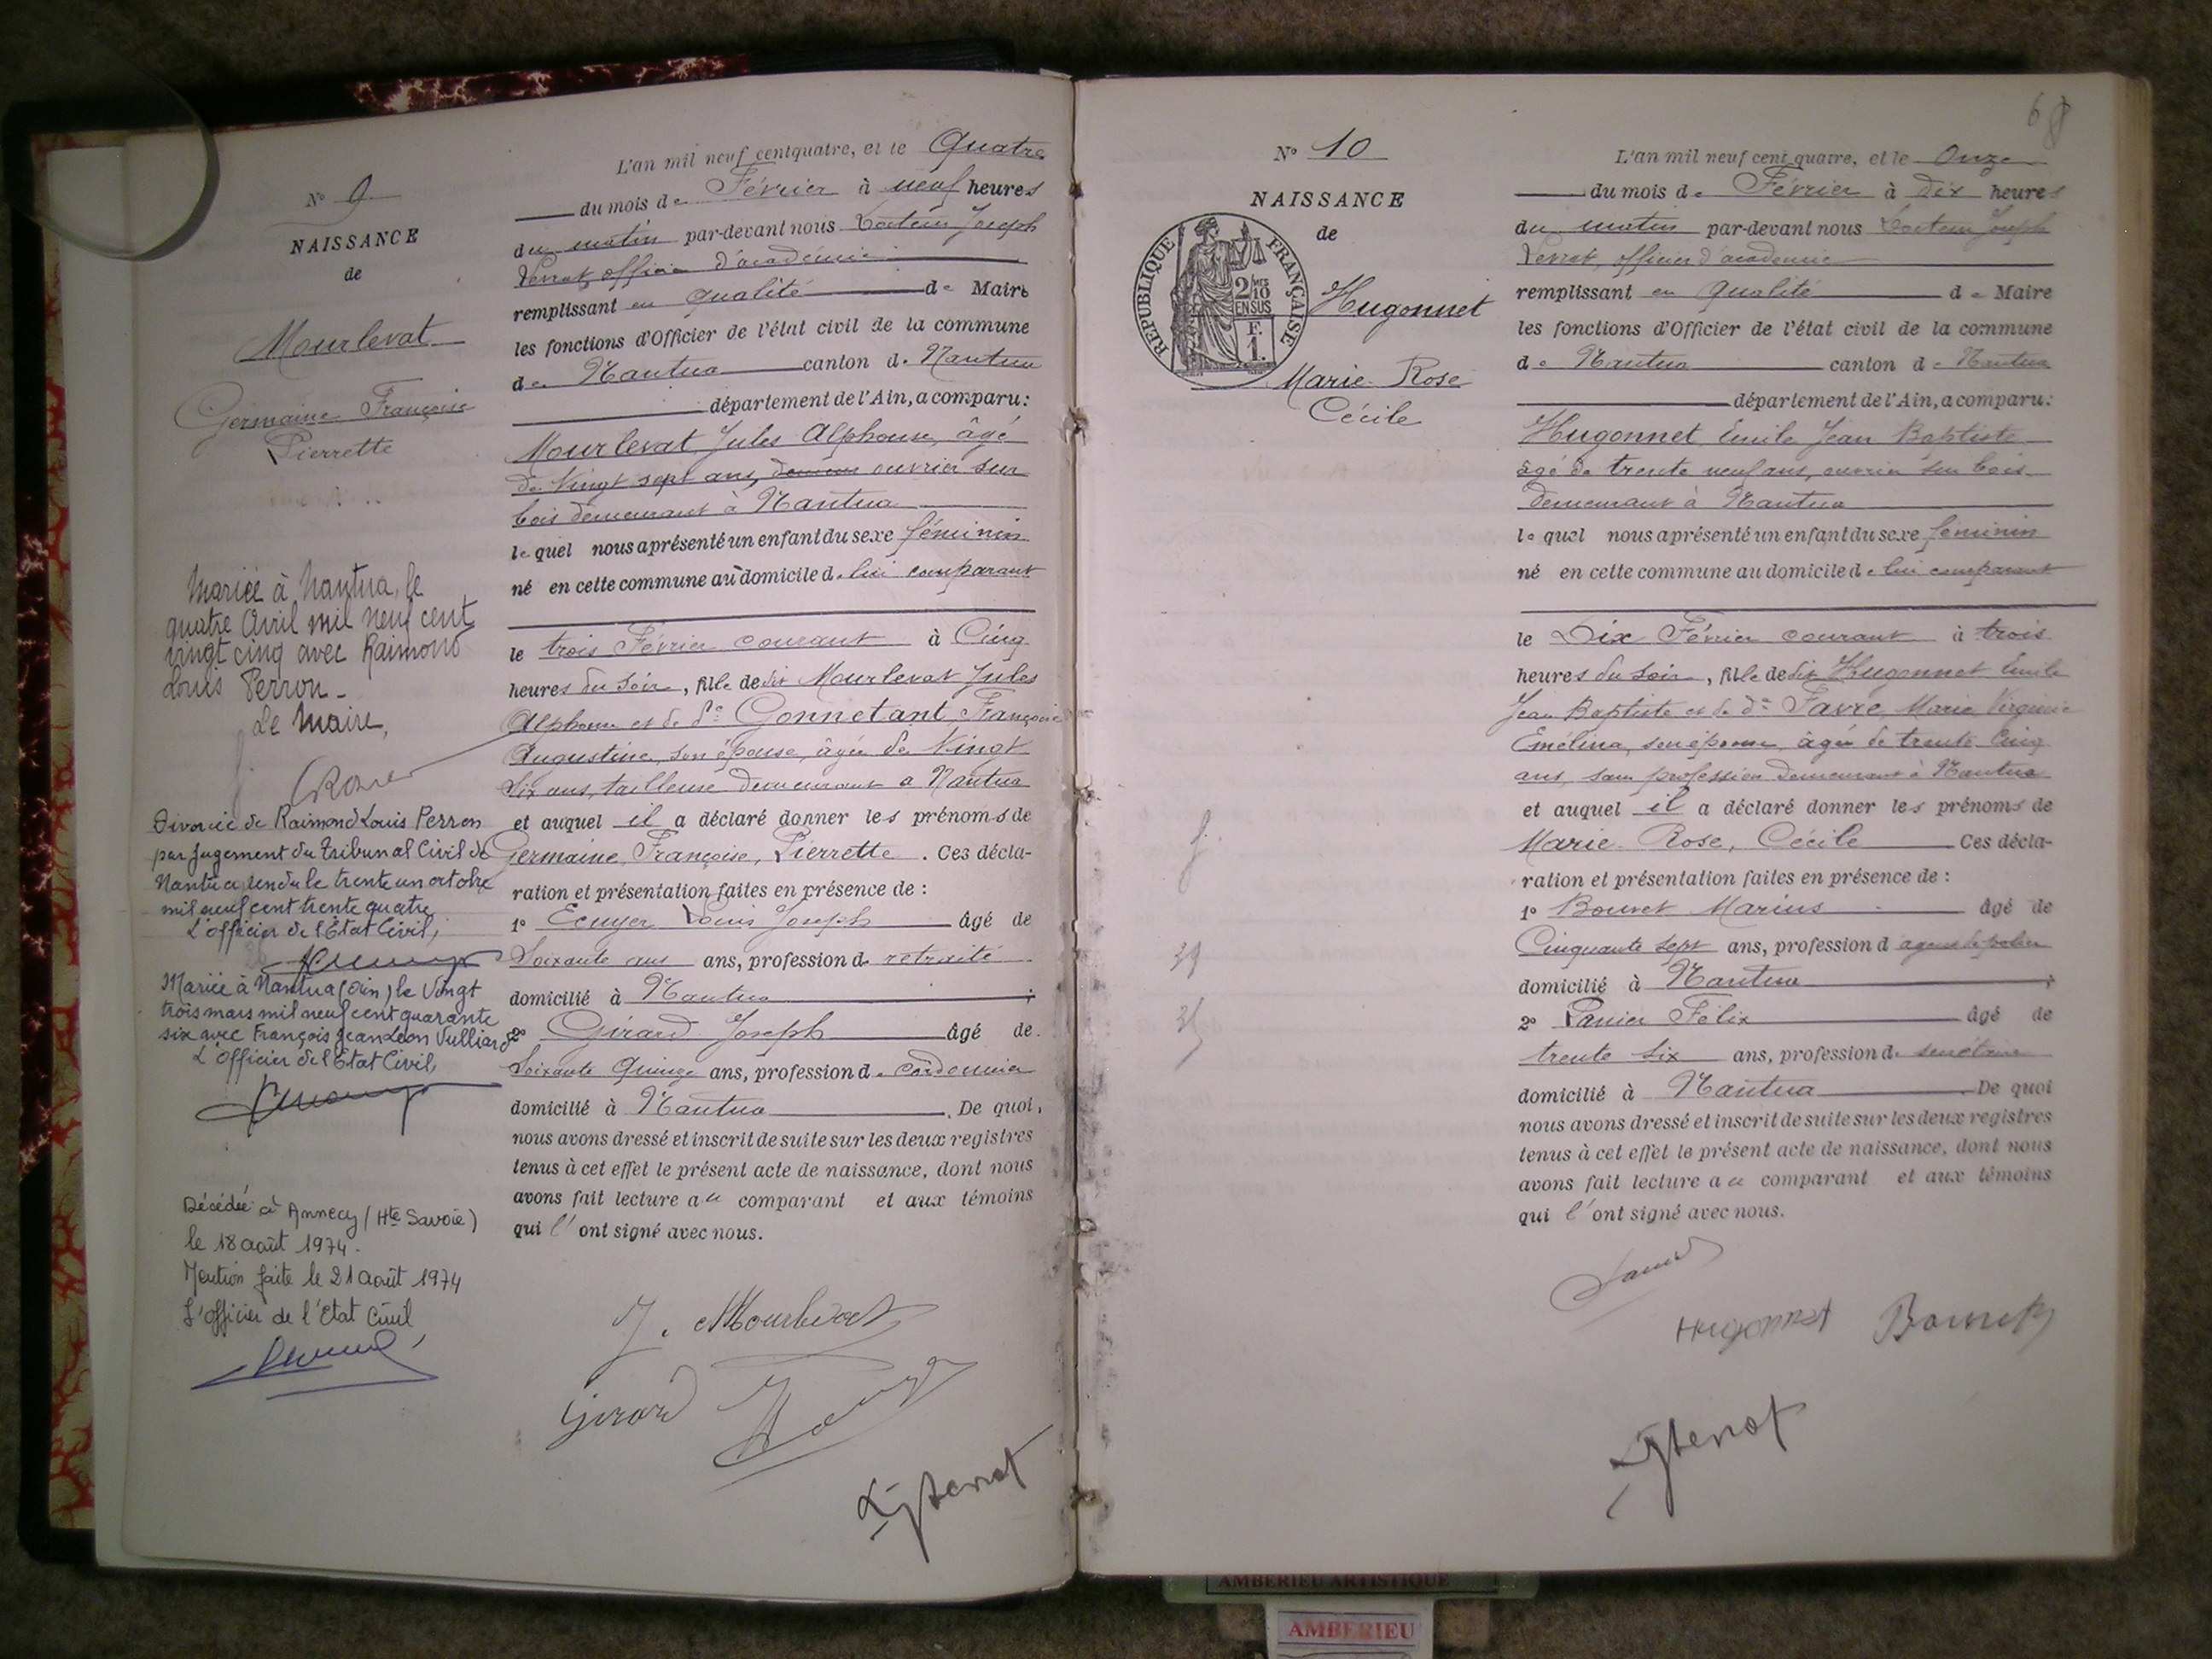 N° 9
NAISSANCE
de
Mourlevat
Germaine Françoise
Pierrette
Mariée à Nantua, le
quatre Avril mil neuf cent
vingt cinq avec Raimond
Louis Perron -
Le Maire,
Divorcée de Raimond Louis Perron
par jugement du Tribunal Civil de
Nantua, rendu le trente un octobre
mil neuf cent trente quatre
L'officier de l'Etat Civil,
Mariée à Nantua (Ain) le Vingt
trois mars mil neuf cent quarante
six avec François Jean Léon Vulliard
L'Officier de l'Etat Civil,
Décédée à Annecy (Hte Savoie)
le 18 août 1974.
Mention faite le 21 août 1974
L'officier de l'Etat Civil
L'an mil neuf cent quatre, et le Quatre
du mois de Février à neuf heures
du matin par-devant nous Docteur Joseph
officier d'académie
remplissant en qualité de Maire
les fonctions d'Officier de l'état civil de la commune
de Nantua canton de Nantua
département de l'Ain, a comparu:
Mourlevat Jules Alphonse, âgé
de Vingt sept ans, ouvrier sur
bois demeurant à Nantua
le quel nous a présenté un enfant du sexe féminin
né en cette commune au domicile de lui comparant
le trois Février courant à Cinq
heures du soir, fille de dit Mourlevat Jules
Alphonse et de de Gonnetant Françoise
Augustine, son épouse, âgée de Vingt
six ans, tailleuse demeurant a Nantua
et auquel il a déclaré donner les prénoms de
Germaine, Françoise, Pierrette. Ces décla-
ration et présentation faites en présence de :
1° Ecuyer Louis Joseph âgé de
Soixante ans ans, profession de retraité
domicilié à Nantua ;
2° Girard Joseph âgé de
Soixante Quinze ans, profession de Cordonnier
domicilié à Nantua. De quoi,
nous avons dressé et inscrit de suite sur les deux registres
tenus à cet effet le présent acte de naissance, dont nous
avons fait lecture au comparant et aux témoins
qui l'ont signé avec nous.
J. Mourlevat
Girard
68
N° 10
NAISSANCE
de
RÉPUBLIQUE FRANÇAISE
2/10
EN SUS
F.
1.
Hugonnet
Marie Rose
Cécile
L'an mil neuf cent quatre, et le Onze
du mois de Février à dix heures
du matin par-devant nous Docteur Joseph
officier d'académie
remplissant en qualité de Maire
les fonctions d'Officier de l'état civil de la commune
de Nantua canton de Nantua
département de l'Ain, a comparu:
Hugonnet, Emile Jean Baptiste
âgé de trente neuf ans, ouvrier sur bois
demeurant à Nantua
le quel nous a présenté un enfant du sexe féminin
né en cette commune au domicile de lui comparant
le Dix Février courant à trois
heures du soir, fille de dit Hugonnet Emile
Jean Baptiste et de de Favre, Marie Virginie
Emélina, son épouse, âgée de trente Cinq
ans, sans profession demeurant à Nantua
et auquel il a déclaré donner les prénoms de
Marie Rose, Cécile Ces décla-
ration et présentation faites en présence de :
1° Bouvet Marius âgé de
Cinquante sept ans, profession d agent de police
domicilié à Nantua ;
2° Panier Félix âgé de
trente six ans, profession de secrétaire
domicilié à Nantua De quoi
nous avons dressé et inscrit de suite sur les deux registres
tenus à cet effet le présent acte de naissance, dont nous
avons fait lecture au comparant et aux témoins
qui l'ont signé avec nous.
Hugonnet
AMBERIEU ARTISTIQUE
AMBERIEU